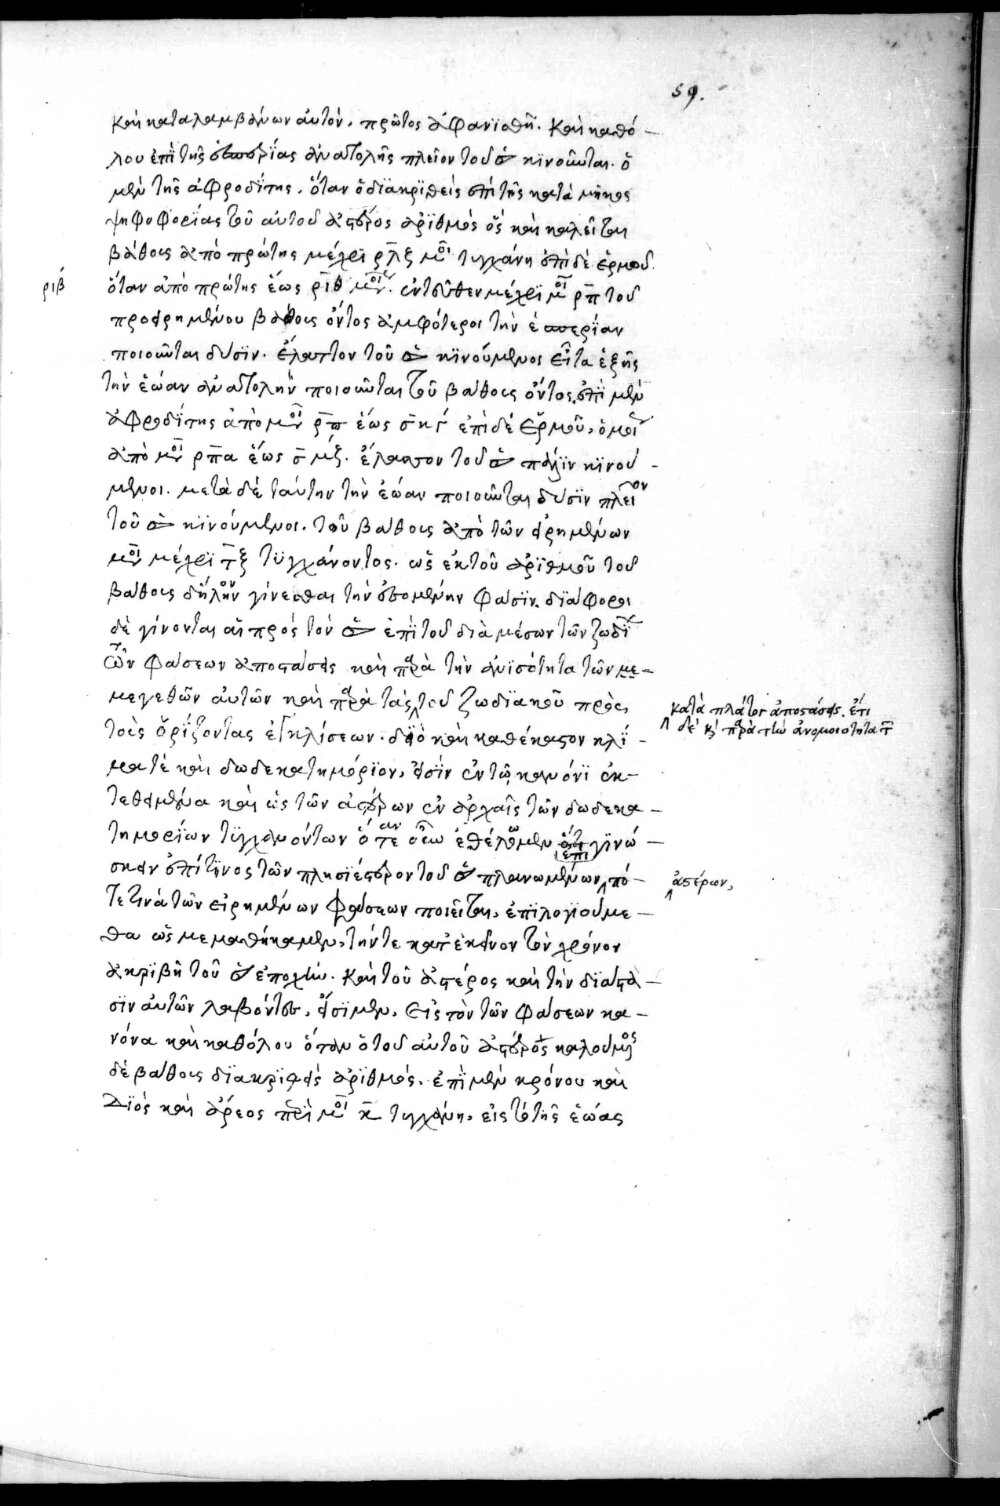 59.
καὶ καταλαμβάνων αὐτόν. πρῶτος ἀφανισθῆ. καὶ καθό-
λου ἐπὶ τῆς ἑσπερίας ἀνατολῆς πλεῖον τοῦ ☉ κϊνοῦνται. ὁ
μὲν τῆς ἀφροδίτης. ὅταν ὁ δϊακρϊθεὶς ἐπὶ τῆς κατὰ μῆκος
ψηφοφορίας τοῦ αὐτοῦ ἀστέρος ἀρϊθμὸς ὃς καὶ καλεῖται
βάθους ἀπὸ πρώτης μέχρϊ ρλξ μοι τυγχάνη ἐπὶ δὲ ἑρμοῦ
ριβ
ὅταν ἀπὸ πρώτης ἕως ριθ μοι. ἐντεῦθεν μέχρϊ μοι ρπ τοῦ
προειρημένου βάθους ὄντος ἀμφότεροι τὴν ἑσπερίαν
ποιοῦνται δύσϊν. ἔλαττον τοῦ ☉ κϊνούμενοι εἶτα ἑξῆς
τὴν ἑῴαν ἀνατολὴν ποιοῦνται τοῦ βάθους ὄντος. ἐπὶ μὲν
ἀφροδίτης ἀπὸ μοι ρπ ἕως σκγ ἐπὶ δὲ ἑρμοῦ, ὁμοι
ἀπὸ μοι ρπα ἕως σμξ. ἔλαττον τοῦ ☉ πάλϊν κϊνού-
μενοι. μετὰ δὲ ταύτην τὴν ἑῴαν ποιοῦνται δύσϊν πλεῖον
τοῦ ☉ κϊνούμενοι. τοῦ βάθους ἀπὸ τῶν εἰρημένων
μοι μέχρϊ τξ τϋγχάνοντος. ὡς ἐκ τοῦ ἀρϊθμοῦ τοῦ
βάθους δῆλον γίνεσθαι τὴν ἑπομένην φάσϊν. δϊάφοροι
δὲ γίνονται αἱ πρὸς τὸν ☉ ἐπὶ τοῦ διὰ μέσων τῶν ζωδϊ
ων φάσεων ἀποστάσεις καὶ παρὰ τὴν ἀνϊσότητα τῶν με-
μεγεθῶν αὐτῶν καὶ παρὰ τὰς τοῦ ζωδϊακοῦ πρὸς
κατὰ πλάτος ἀποστάσεις. ἔτι
δὲ κ παρὰ τὴν ἀνομοιότητα τ
τοὺς ὁρίζοντας ἐγκλίσεων. δϊὸ καὶ καθ' ἕκαστον κλί-
μα τὲ καὶ δωδεκατημόρϊον, εἰσὶν ἐν τῷ κανόνϊ ἐκ-
τεθειμένα καὶ ὡς τῶν ἀστέρων ἐν ἀρχαῖς τῶν δωδεκα-
τημορίων τϋγχανόντων ὅταν τε οὖν ἐθέλωμεν ἐπὶ γϊνώ
σκειν ἐπὶ τϊνος τῶν πλησϊέστερον τοῦ ☉ πλανωμένων πό-
ἀστέρων,
τε τϊνὰ τῶν εἰρημένων φάσεων ποιεῖται, ἐπϊλογϊούμε-
θα ὡς μεμαθήκαμεν, τήν τε κατ' ἐκεῖνον τὸν χρόνον
ἀκριβῆ τοῦ ☉ ἐποχὴν. καὶ τοῦ ἀστέρος καὶ τὴν δϊάστα-
σϊν αὐτῶν λαβόντες, εἴσϊμεν, εἰς τὸν τῶν φάσεων κα-
νόνα καὶ καθόλου ὅταν ὁ τοῦ αὐτοῦ ἀστέρος καλούμενος
δὲ βάθους δϊακρϊθεὶς ἀρϊθμὸς. ἐπὶ μὲν κρόνου καὶ
Διὸς καὶ ἄρεος περὶ μοι κ τυγχάνη. εἰς τὸ τῆς ἑῴας